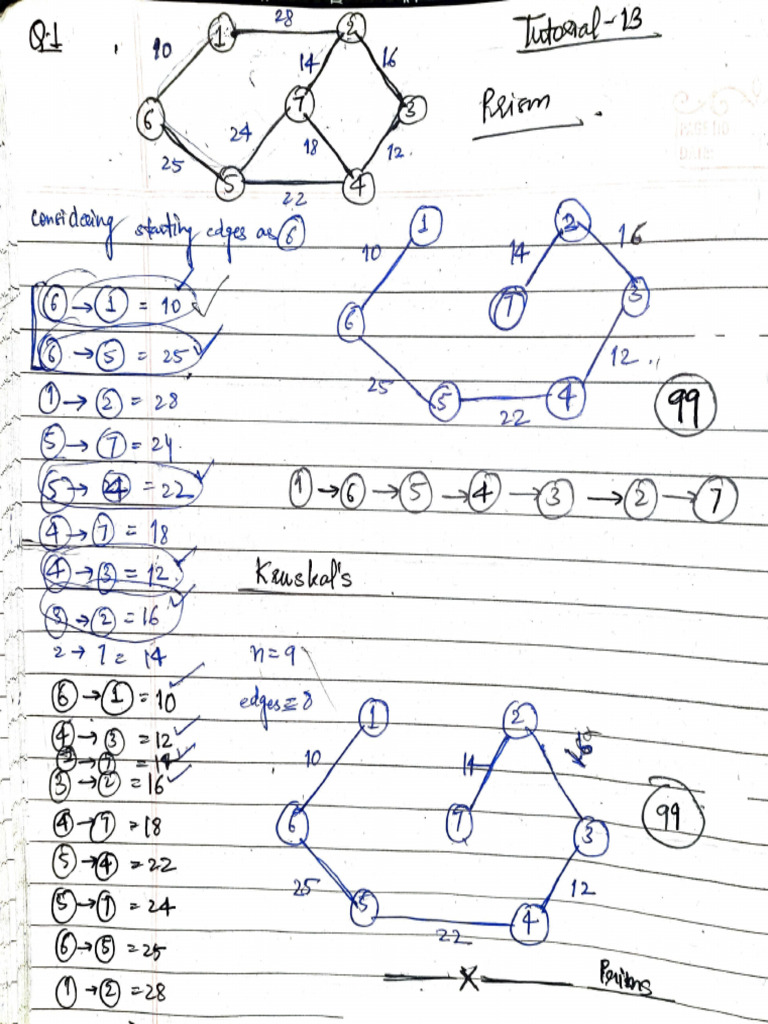 Q.1
Tutorial-13
Prism
1 28 2
10 14 16
6 7 3
24 18 12
25
5 22 4
considering starting edges as 6
6 → 1 = 10
6 → 5 = 25
1 → 2 = 28
5 → 7 = 24
5 → 4 = 22
4 → 7 = 18
4 → 3 = 12
3 → 2 = 16
2 → 7 = 14
1 2 16
10 14
6 7 3
25 12
5 22 4
99
1 → 6 → 5 → 4 → 3 → 2 → 7
Kruskal's
n=9
edges = 8
6 → 1 = 10
4 → 3 = 12
2 → 7 = 14
3 → 2 = 16
4 → 7 = 18
5 → 4 = 22
5 → 7 = 24
6 → 5 = 25
1 → 2 = 28
1 2
10 14
6 7 3
25 12
5 22 4
99
X